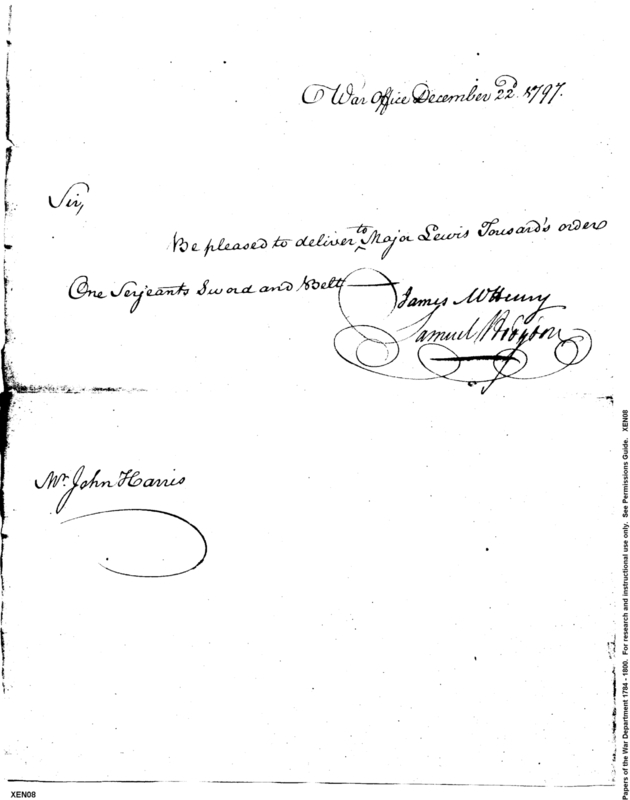 War Office December 22d. 1797.
Sir,
Be pleased to deliver to Major Lewis Tousard's order
One Serjeants Sword and Belt
James McHenry
Samuel Hodgdon
Mr. John Harris
Papers of the War Department 1784 - 1800. For research and instructional use only. See Permissions Guide. XEN08
XEN08